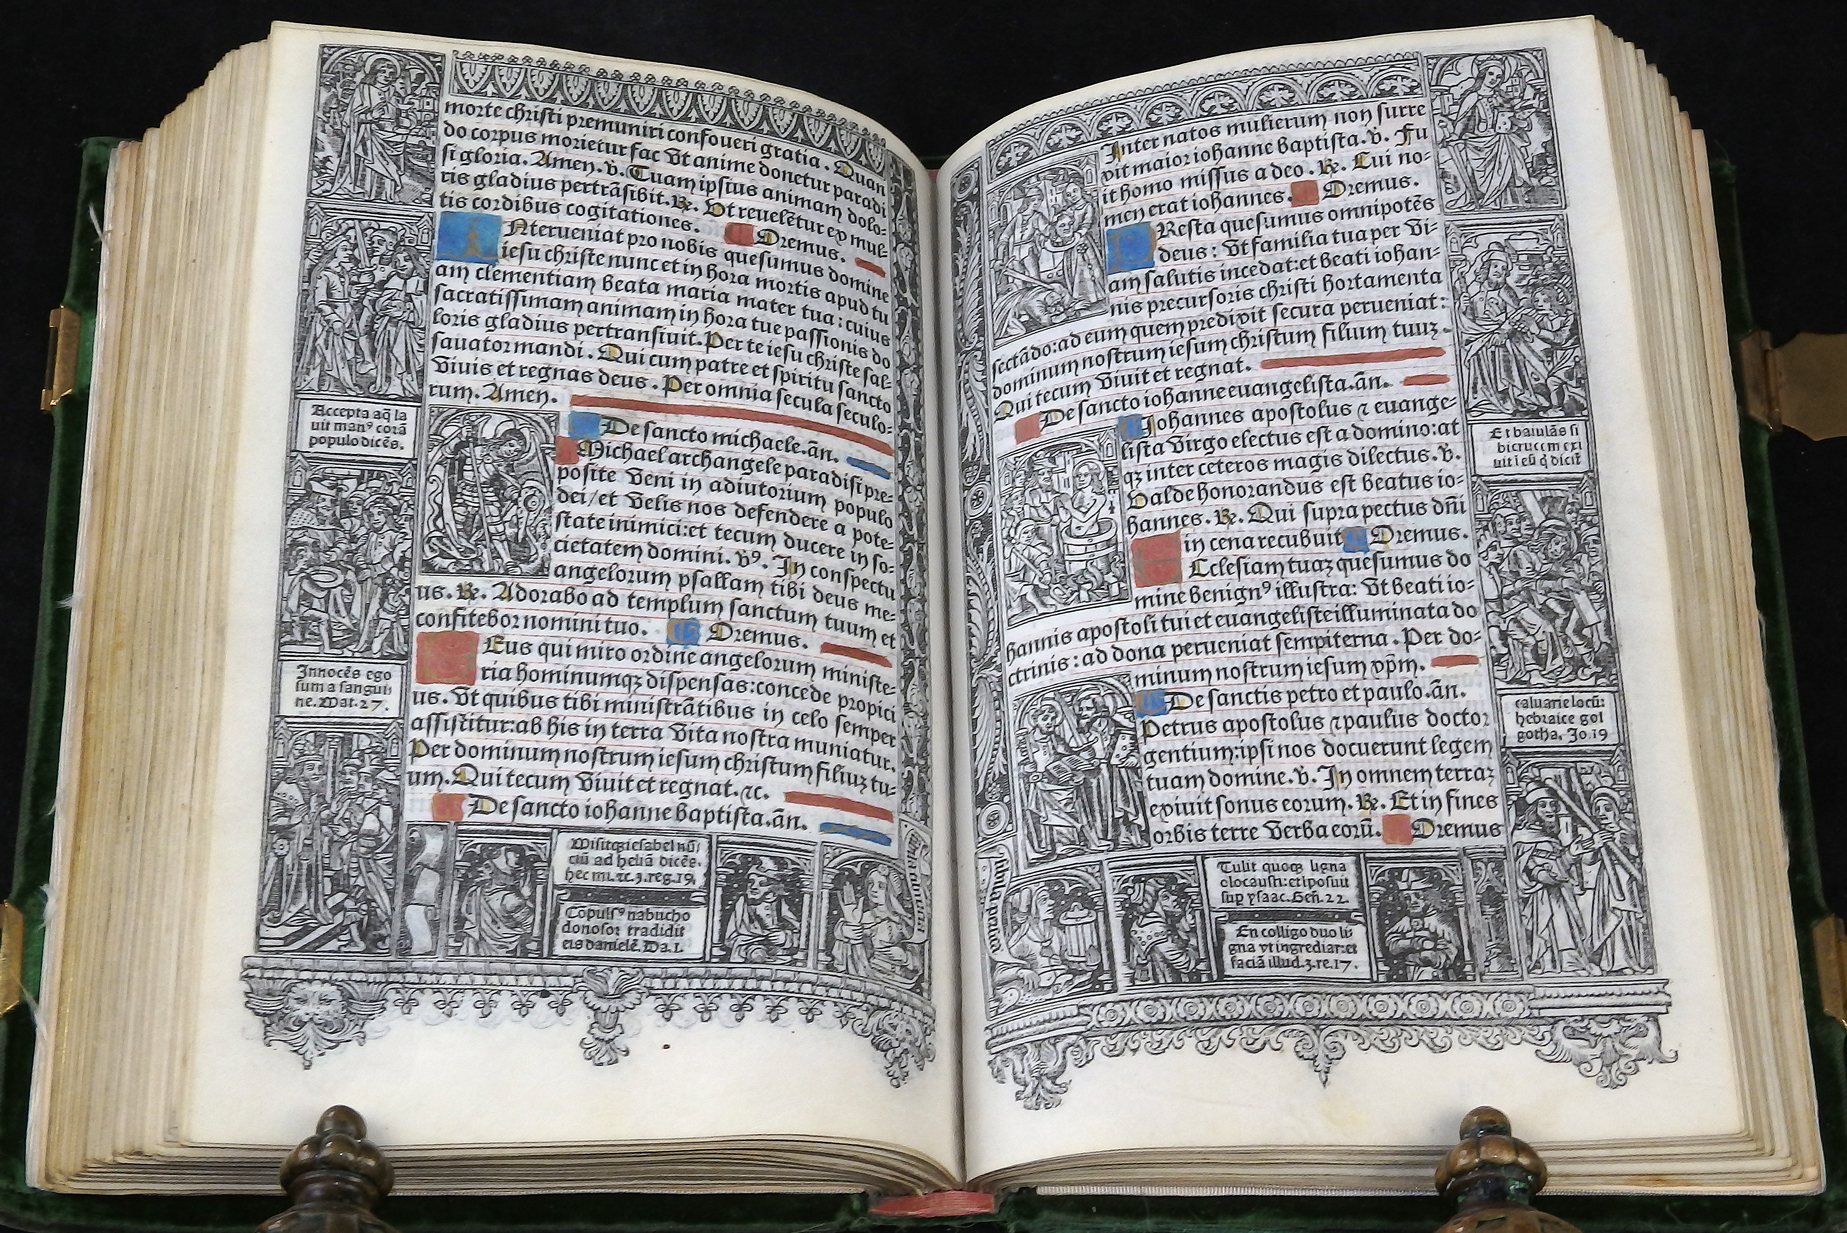 morte christi premuniri confoueri gratia. Quan
do corpus morietur fac vt anime donetur paradi
si gloria. Amen. v. Tuam ipsius animam dolo-
ris gladius pertrãsibit. R. Vt reuelẽtur ex mul-
tis cordibus cogitationes. Oremus.
INterueniat pro nobis quesumus domine
iesu christe nunc et in hora mortis apud tu
am clementiam beata maria mater tua: cuius
sacratissimam animam in hora tue passionis do
loris gladius pertransiuit. Per te iesu christe sal-
uator mundi. Qui cum patre et spiritu sancto
viuis et regnas deus. Per omnia secula seculo-
rum. Amen.
De sancto michaele. añ.
Michael archangele paradisi pre-
posite veni in adiutorium populo
dei/et velis nos defendere a pote-
state inimici: et tecum ducere in so-
cietatem domini. v9. In conspectu
angelorum psallam tibi deus me-
us. R. Adorabo ad templum sanctum tuum et
confitebor nomini tuo. Oremus.
Eus qui miro ordine angelorum ministe-
ria hominumqz dispensas: concede propici
us. vt quibus tibi ministrãtibus in celo semper
assistitur: ab his in terra vita nostra muniatur.
Per dominum nostrum iesum christum filiuz tu-
um. Qui tecum viuit et regnat. ⁊c.
De sancto iohanne baptista. añ.
Accepta aq̃ la
uit man9 corã
populo dicẽs.
Innocẽs ego
sum a sangui
ne. Mat. 27.
Misitqz iesabel nũ
ciũ ad heliã dicẽs.
hec mi. ⁊c. 3. reg. 19.
Cõpuls9 nabucho
donosor tradidit
eis danielẽ. Da. 1.
Inter natos mulierum non surre
xit maior iohanne baptista. v. Fu
it homo missus a deo. R. Cui no-
men erat iohannes. Oremus.
PResta quesumus omnipotẽs
deus: vt familia tua per vi-
am salutis incedat: et beati iohan-
nis precursoris christi hortamenta
sectãdo: ad eum quem predixit secura perueniat:
dominum nostrum iesum christum filium tuuz.
Qui tecum viuit et regnat.
De sancto iohanne euangelista. añ.
Iohannes apostolus ⁊ euange-
lista virgo electus est a domino: at
qz inter ceteros magis dilectus. v.
Valde honorandus est beatus io-
hannes. R. Qui supra pectus dñi
in cena recubuit Oremus.
Eclesiam tuaz quesumus do
mine benign9 illustra: vt beati io-
hannis apostoli tui et euangeliste illuminata do
ctrinis: ad dona perueniat sempiterna. Per do-
minum nostrum iesum xp̃m.
De sanctis petro et paulo. añ.
Petrus apostolus ⁊ paulus doctor
gentium: ipsi nos docuerunt legem
tuam domine. v. In omnem terraz
exiuit sonus eorum. R. Et in fines
orbis terre verba eorũ. Oremus
Et baiulãs si
bi crucem exi
uit i eũ q̃ dicit̃
caluarie locũ:
hebraice gol
gotha. Jo. 19
Tulit quoqz ligna
olocausti: et iposuit
sup ysaac. Geñ. 22.
En colligo duo li
gna vt ingrediar: et
faciã illud. 3. re. 17.